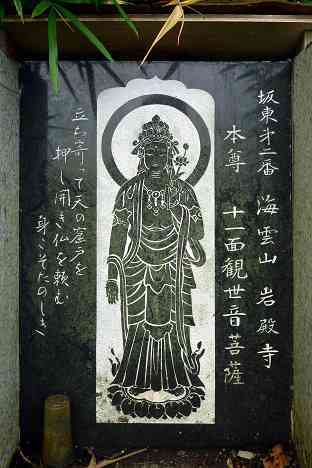 坂東第二番 海雲山 岩殿寺
本尊 十一面観世音菩薩
立ち寄って天の窟戸を
押し開き仏を頼む
身こそたのしき